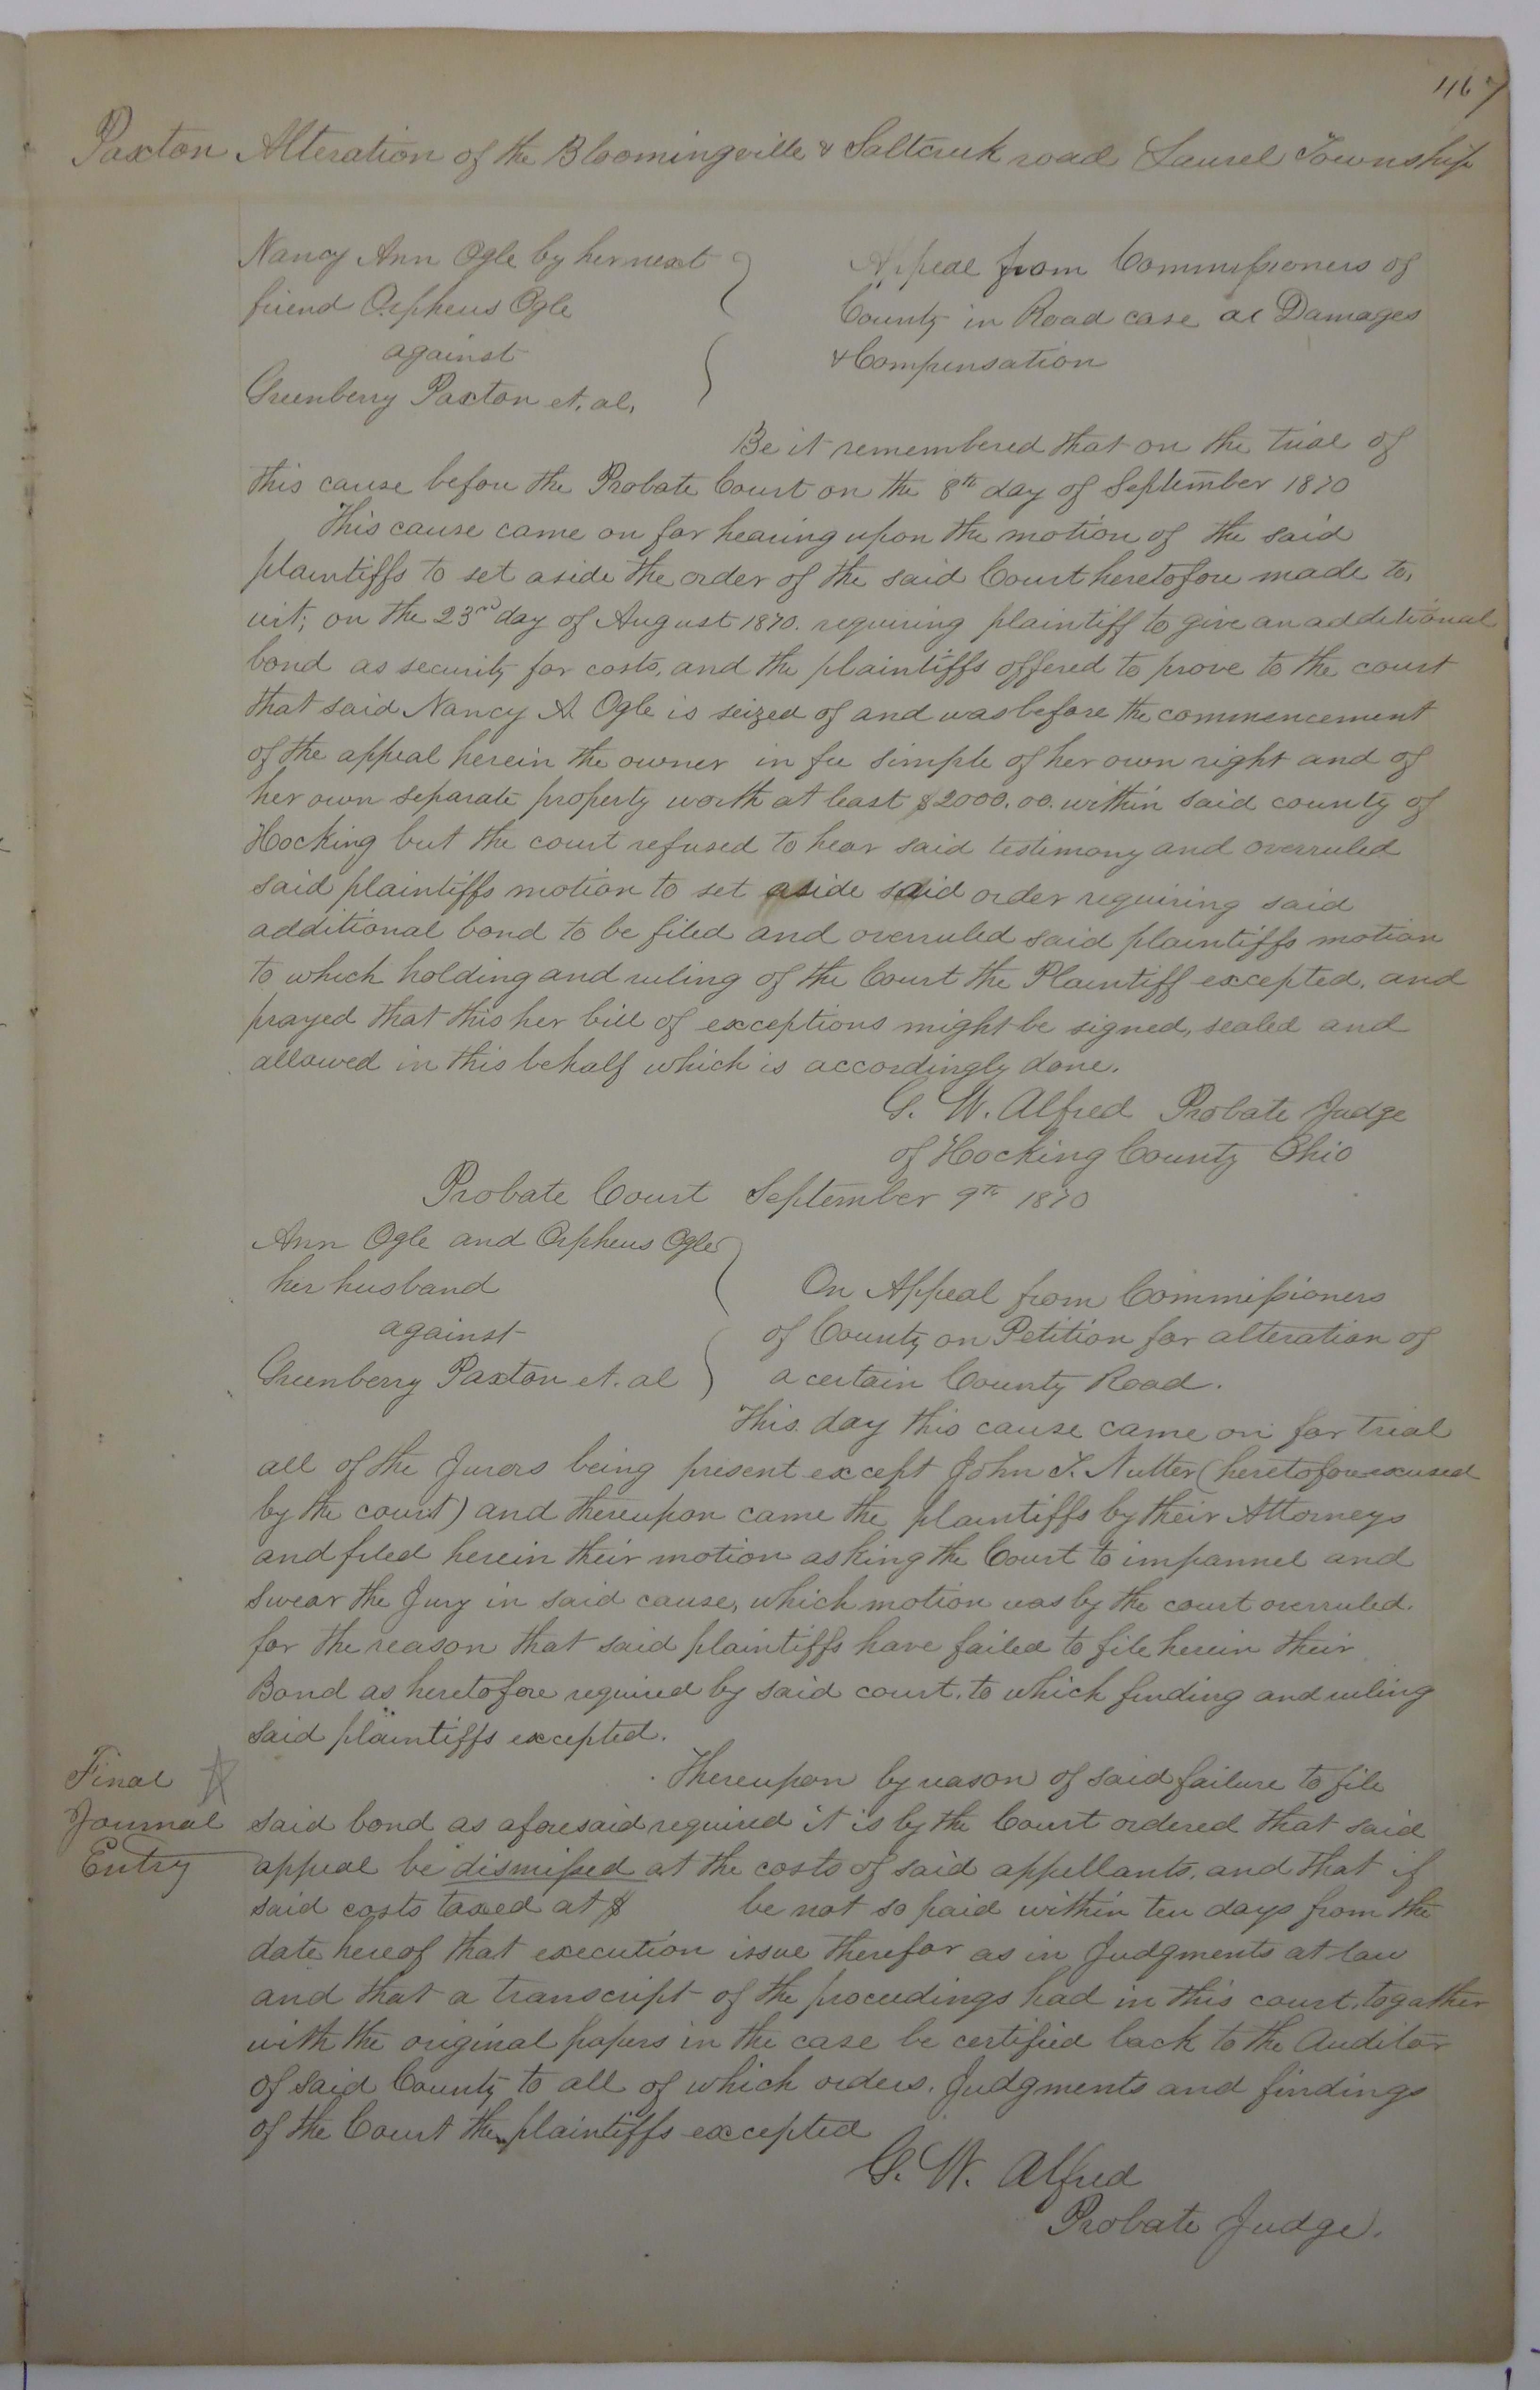 467
Paxton Alteration of the Bloomingville & Saltcreek road Laurel Township
Nancy Ann Ogle by her next
friend Orpheus Ogle
against
Greenberry Paxton et. al,
Appeal from Commissioners of
County in Road case as Damages
& Compensation
Be it remembered that on the trial of
this cause before the Probate Court on the 8th day of September 1870
This cause came on for hearing upon the motion of the said
plaintiffs to set aside the order of the said Court heretofore made to,
wit; on the 23rd day of August 1870. requiring plaintiff to give an additional
bond as security for costs, and the plaintiffs offered to prove to the court
that said Nancy A Ogle is seized of and was before the commencement
of the appeal herein the owner in fee simple of her own right and of
her own separate property worth at least $2000.00. within said county of
Hocking but the court refused to hear said testimony and overruled
said plaintiffs motion to set aside said order requiring said
additional bond to be filed and overruled said plaintiffs motion
to which holding and ruling of the Court the Plaintiff excepted, and
prayed that this her bill of exceptions might be signed, sealed and
allowed in this behalf which is accordingly done.
G. W. Alfred Probate Judge
of Hocking County Ohio
Probate Court September 9th 1870
Ann Ogle and Orpheus Ogle
her husband
against
Greenberry Paxton et. al
On Appeal from Commissioners
of County on Petition for alteration of
a certain County Road.
This day this cause came on for trial
all of the Jurors being present except John T. Nutter (heretofore excused
by the court) and thereupon came the plaintiffs by their Attorneys
and filed herein their motion asking the Court to impannel and
swear the Jury in said cause, which motion was by the court overruled.
for the reason that said plaintiffs have failed to file herein their
Bond as heretofore required by said court. to which finding and ruling
said plaintiffs excepted.
Final
Journal
Entry
Thereupon by reason of said failure to file
said bond as aforesaid required it is by the Court ordered that said
appeal be dismissed at the costs of said appellants, and that if
said costs taxed at $ be not so paid within ten days from the
date hereof that execution issue therefor as in Judgments at law
and that a transcript of the proceedings had in this court, togather
with the original papers in the case be certified back to the Auditor
of said County to all of which orders. Judgments and findings
of the Court the plaintiffs excepted
G. W. Alfred
Probate Judge.